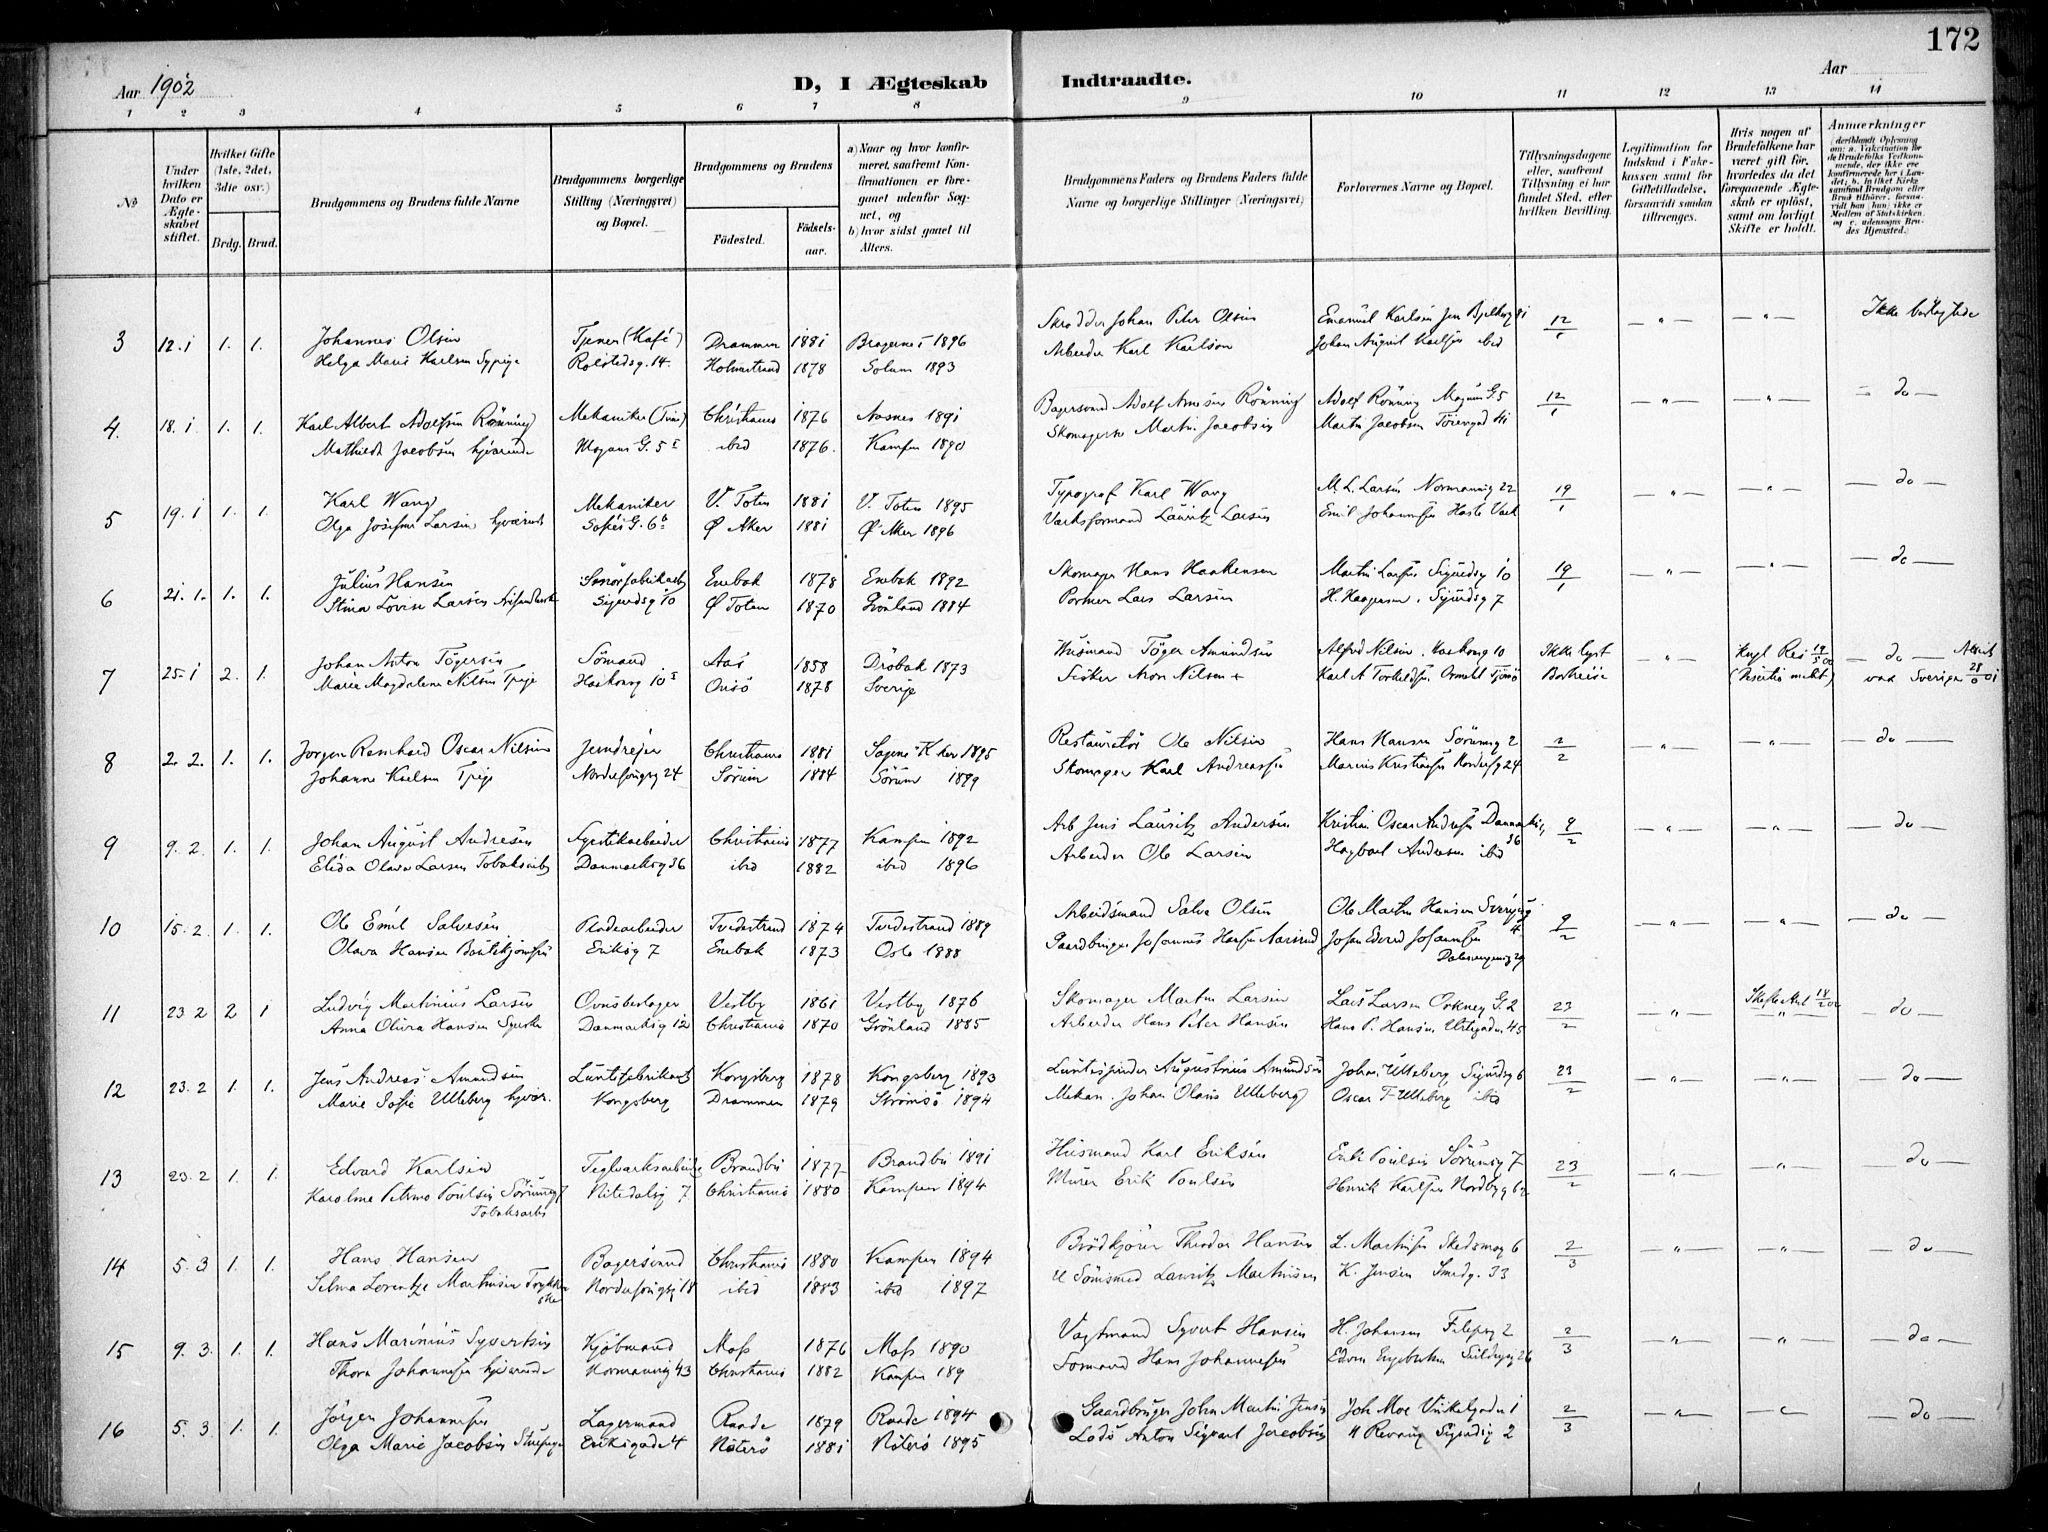 172
Aar 1902
D, I Ægteskab
Indtraadte.
Aar
1 2 3 4 5 6 7 8 9 10 11 12 13 14
No
Under hvilken Dato er Ægteskabet stiftet.
Hvilket Gifte (1ste, 2det, 3die osv.)
Brdg. Brud.
Brudgommens og Brudens fulde Navne
Brudgommens borgerlige Stilling (Næringsvei) og Bopæl.
Brudgommens og Brudens
Fødested.
Fødselsaar.
a) Naar og hvor konfirmeret, saafremt Konfirmationen er foregaaet udenfor Sognet, og
b) hvor sidst gaaet til Alters.
Brudgommens Faders og Brudens Faders fulde Navne og borgerlige Stillinger (Næringsvei)
Forlovernes Navne og Bopæl.
Tillysningsdagene eller, saafremt Tillysning ei har fundet Sted, efter hvilken Bevilling.
Legitimation for Indskud i Enkekassen samt for Giftetilladelse, forsaavidt saadan tiltrænges.
Hvis nogen af Brudefolkene har været gift før, hvorledes da det foregaaende Ægteskab er opløst, samt om lovligt Skifte er holdt.
Anmærkninger
(deriblandt Oplysning om: a. Vakcination for de Brudefolks Vedkommende, der ikke ere konfirmerede her i Landet; b. in hvilket Kirkesamfund Brudgom eller Brud tilhører, forsaavidt han (hun) ikke er Medlem af Statskirken, og c. udensogns Brudes Hjemsted.)
3 12.1 1. 1. Johannes Olsen Tjener (Kafé) Drammen 1881 Bragernes 1896 Skrædder Johan Peter Olsen 12/1 — " — — " — Ikke beslægtede
Helga Marie Karlsen Sypige Rolstedsg. 14. Holmestrand 1878 Solum 1893 Arbeider Karl Karlson Johan August Karlsen ibid
4. 18.1 1. 1. Karl Albert Adolfsen Rönning Mekaniker Christiania 1876 Aasnes 1891 Adolf Rönning Magnus G. 5 12/1 — " — — " — — do —
Mathilde Jacobsen hjværende Magnus G. 5 ibid 1876. Kampen 1890 Skomager Martin Jacobsen Martin Jacobsen Töiengad 41
5 19.1 1. 1. Karl Wang Mekaniker V. Toten 1881 V. Toten 1895 Typograf Karl Wang M. L. Larsen Normannsg 22 19/1 — " — — " — — do —
Olga Josefine Larsen hjværende Sofies G. 6 Ø Aker 1881 Ø Aker 1896 Værksformand Lauritz Larsen Emil Johannesen Hasle Værk
6 21.1. 1. 1. Julius Hansen Enebak 1878 Enebak 1892 Skomager Hans Haakensen Martin Larsen Sigurdsg 10 19/1 — " — — " — — do —
Stina Lovise Larsen Sigurdsg 10 Ø Toten 1870 Grönland 1884 Former Lars Larsen H. Haagensen, Sigurdsg 7
7 25.1 2. 1. Johan Anton Tögersen Sömand Aas 1858 Dröbak 1873 Husmand Töger Amundsen Alfred Nilsen Ikke lyst — " — Kngl Res — do —
Marie Magdalene Nilsen Tpige 1878 Sverige Fisker Aron Nilsen + Karl A Torkeldsen
8 2.2. 1. 1. Jorgen Reinhard Oscar Nilsen Christiania 1881 1895 Restauratör Ole Nilsen Hans Hansen Sörumsg 2 2/2 — " — — " — — do —
Johanne Karlsen Tpige 24 Sörum 1884 Sörum 1899 Skomager Karl Andreassen Marius Kristiansen 24
9 9.2. 1. 1. Johan August Andresen Fyrstikarbeider Christiania 1877 Kampen 1892 Arb Jens Lauritz Andersen Kristian Oscar Andresen Danmarksg 36 9/2 — " — — " — — do —
Elida Olava Larsen Tobaksarb Danmarksg 36 ibid 1882 ibid 1896 Arbeider Ole Larsen Hagbart Andresen ibid
10 15.2. 1. 1. Ole Emil Salvesen Pladearbeider Tvedestrand 1874 Tvedestrand 1889 Arbeidsmand Salve Olsen Ole Martin Hansen Sverigsg 4 9/2 — " — — " — — do —
Olava Hansen Eriksg 7 Enebak 1873 Oslo 1888 Gaardbruger Johannes Hansen Johan Edvard Johannsen
11 23 2 2 1 Ludvig Martinius Larsen Vestby 1861 Vestby 1876 Skomager Martin Larsen Lars Larsen Orkney G. 2 23/2 — " — — " — — do —
Anna Olivia Hansen Danmarksg 12 Christiania 1870 Grönland 1885 Arbeider Hans Peter Hansen Hans P. Hansen Urtegaden 45
12 23.2 1. 1. Jens Andreas Amundsen Luntefabrikarb Kongsberg 1878 Kongsberg 1893 Augustinius Amundsen Johan Ulleberg Sigurdsg 6 23/2 — " — — " — — do —
Marie Sofie Ulleberg hjvær. Kongsberg Drammen 1879 Strömsö 1894 Mekan. Johan Olaus Ulleberg Oscar F Ulleberg ibid
13 23 2 1. 1. Edvard Karlsen Teglværksarbeider Brandbu 1877 Brandbu 1891 Husmand Karl Eriksen Erik Poulsen Sörumsg 7 23/2 — " — — " — — do —
Karoline Petrine Poulsen Sörumsg 7 Nitedalsg 7 Christiania 1880 Kampen 1894 Murer Erik Poulsen Henrik Karlsen Nordbyg 62
Tobaksarb
14 5.3 1. 1. Hans Hansen Bagersvend Christiania 1880 Kampen 1894 Brödkjörer Theodor Hansen L. Martinsen Skedsmog 6 2/3 — " — — " — — do —
Selma Lorentze Martinsen 18 ibid 1883 ibid 1897 Lauritz Martinsen K. Jensen Smedg. 33
15 9.3. 1. 1. Hans Marinius Syvertsen Kjöbmand Moss 1876 Moss 1890 Vagtmand Syvert Hansen H. Johansen Filipsg 2 2/3 — " — — " — — do —
Thora Johannesen hjværende Normannsg 43 Christiania 1882 Kampen 189 Formand Hans Johannesen 26
16 5.3. 1. 1. Jörgen Johannesen Lagermand Raade 1879 Raade 1894 Gaardbruger John Martin Jensen Joh Moe Vinkelgaden 1 2/3 — " — — " — — do —
Olga Marie Jacobsen Eriksgade 4 Nöterö 1881 Nöterö 1895 Lods Anton Sigvart Jacobsen Sigurdsg 2